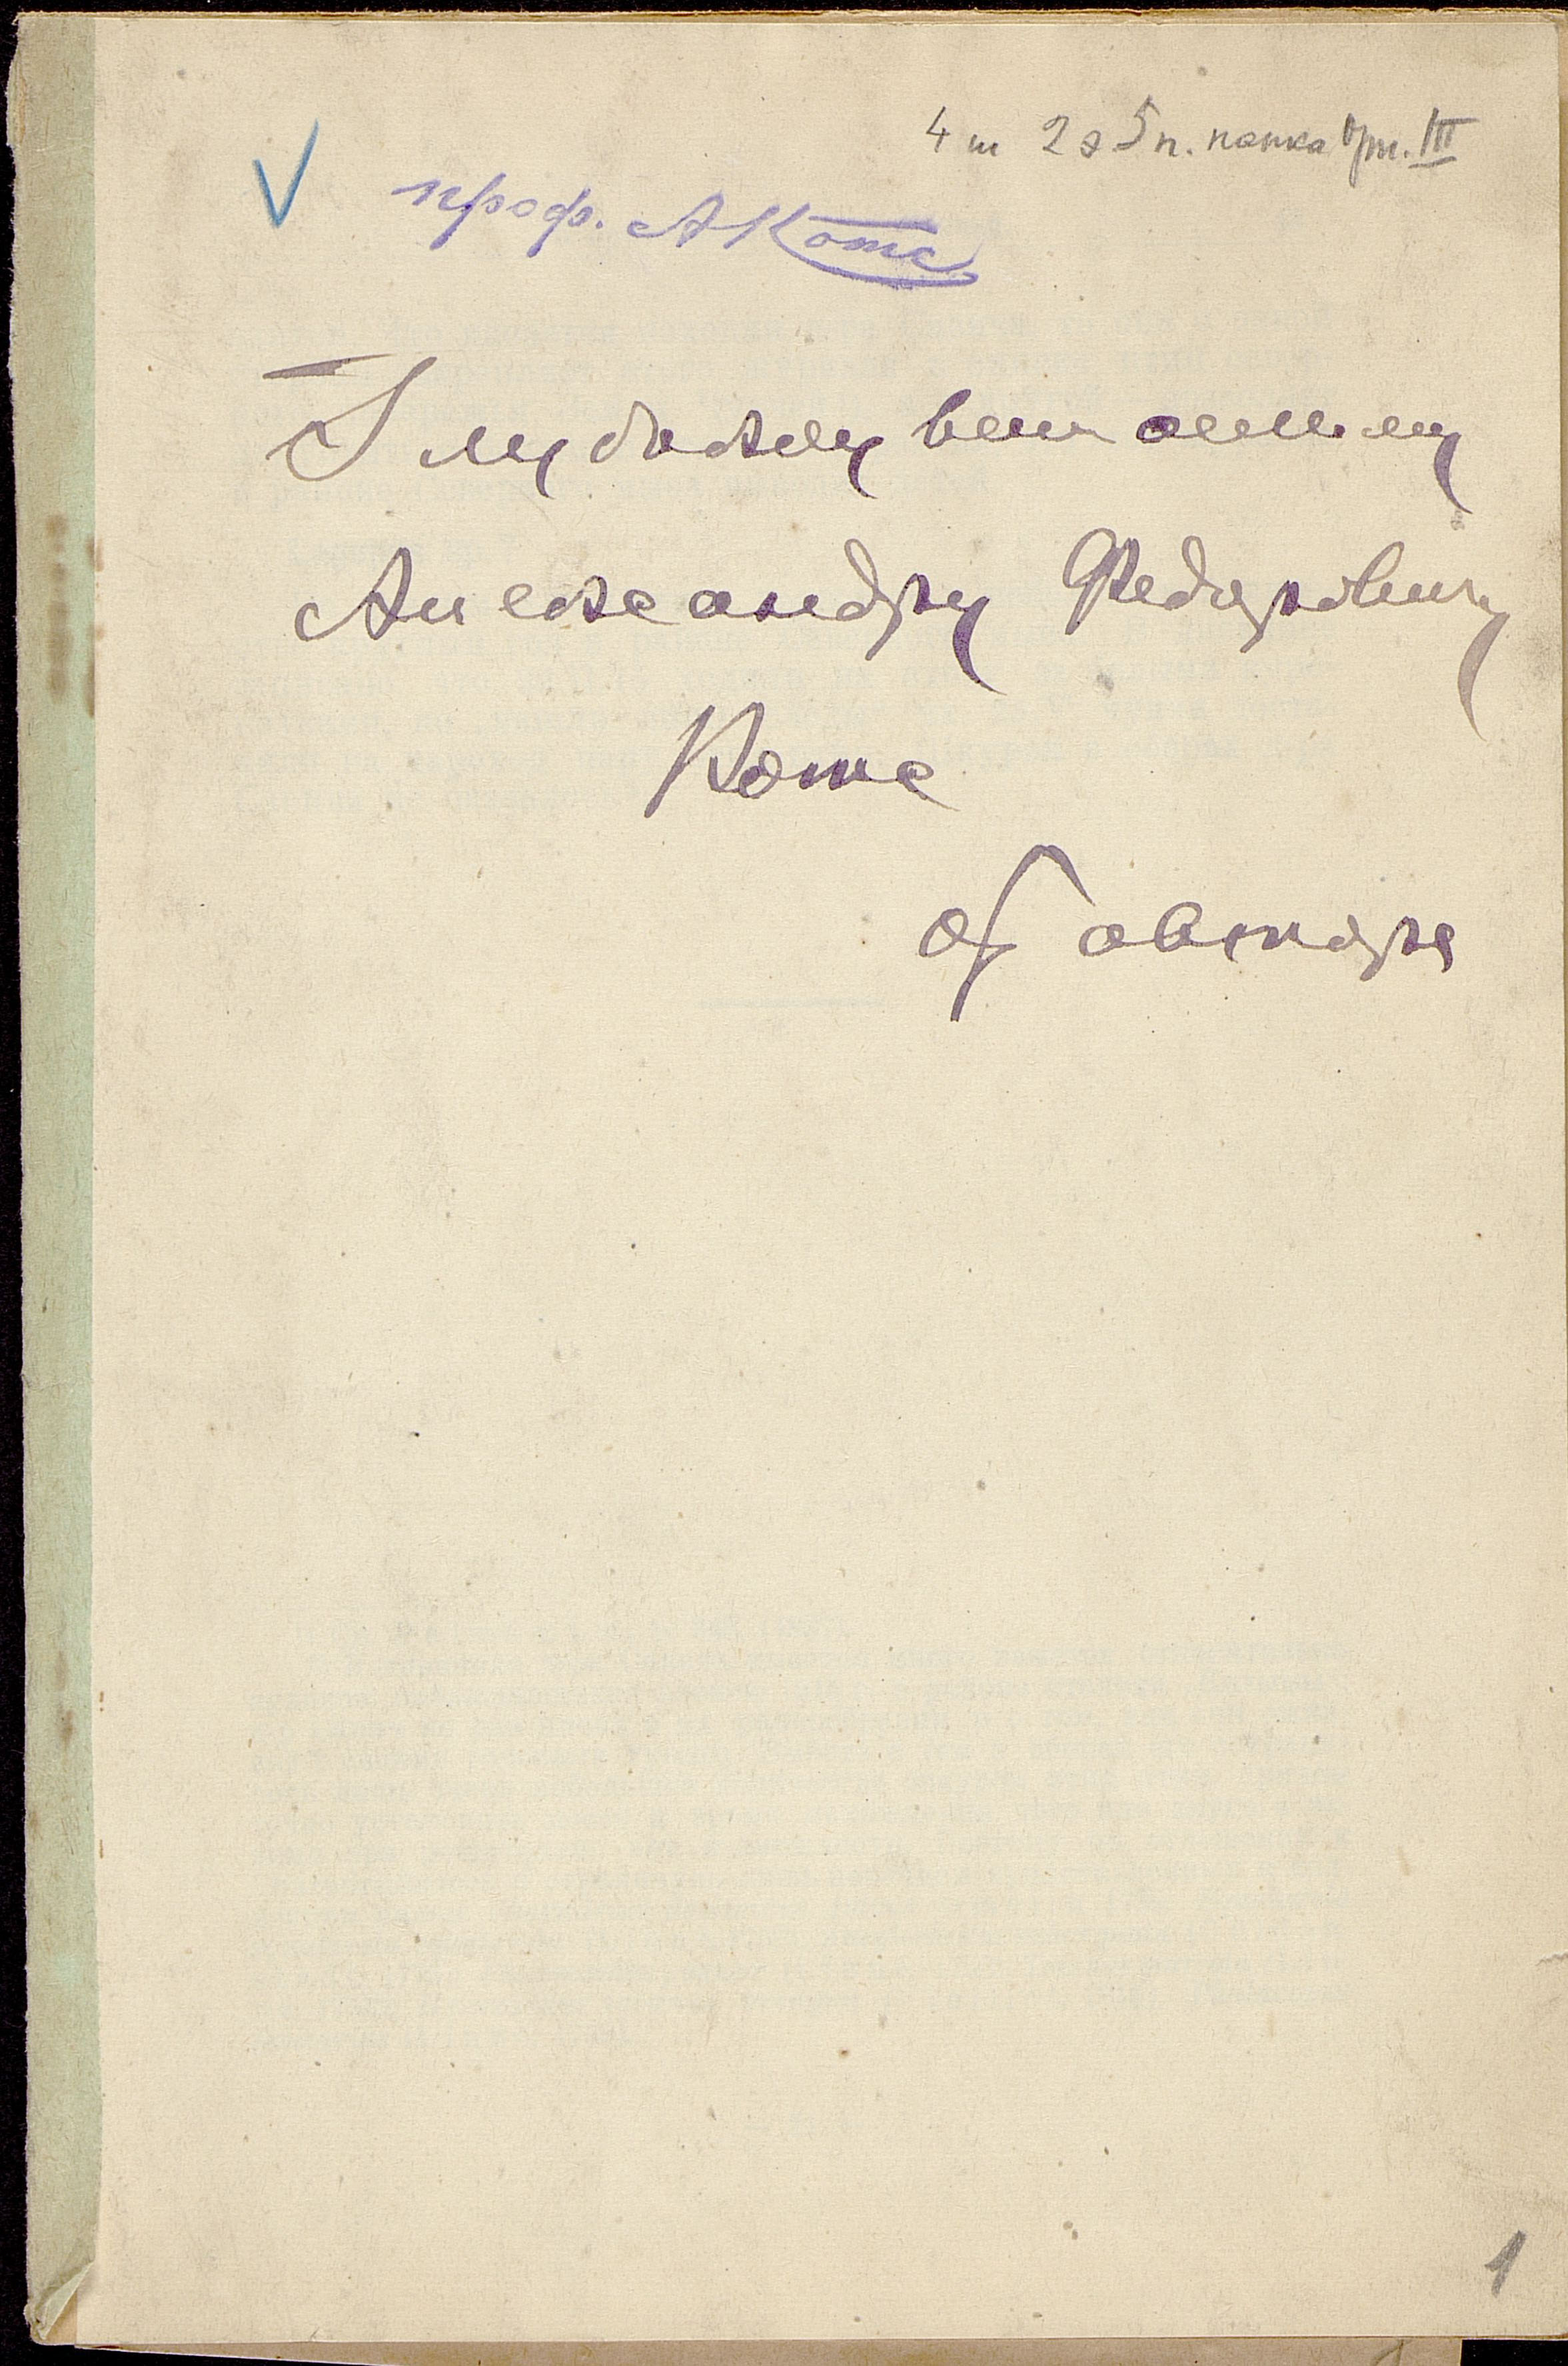 4 ш 2 я 5 п. папка Орт. III
V проф. А Котс
Глубокоуважаемому
Александру Федоровичу
Котс
От автора
1